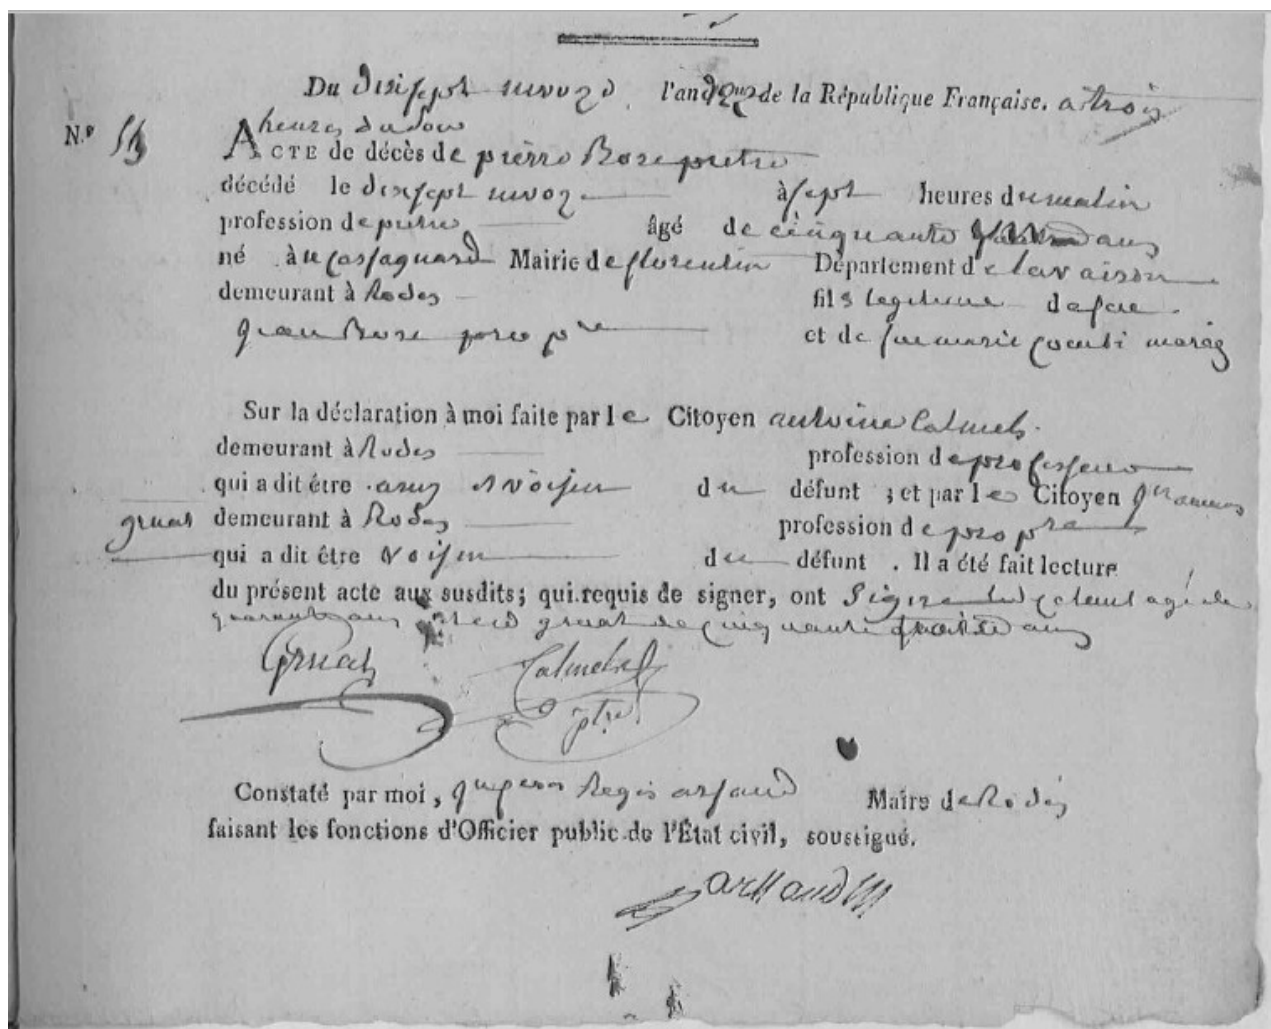 Du dixsept nivoze l'an de la République Française. a trois
N.º 54 heures du soir
ACTE de décès de pierre Boze pretre
décédé le dixsept nivoz à sept heures du matin
profession de pretre âgé de cinquante ans
né à Mairie de florentin Département de laveiron
demeurant à Rodez fils legitime de feu
jean Boze pro pre et de feu marie mariés
Sur la déclaration à moi faite par le Citoyen antoine Calmels
demeurant à Rodez profession de professeur
qui a dit être amy et voisin du défunt ; et par le Citoyen
gruat demeurant à Rodez profession de pro pre
qui a dit être voisin du défunt . Il a été fait lecture
du présent acte aux susdits; qui requis de signer, ont signé led calmels agé de
quarante ans et led gruat de cinquante quatre ans
Gruat Calmels
ptre
Constaté par moi, Regis arssaud Maire de Rodez
faisant les fonctions d'Officier public de l'État civil, soussigné.